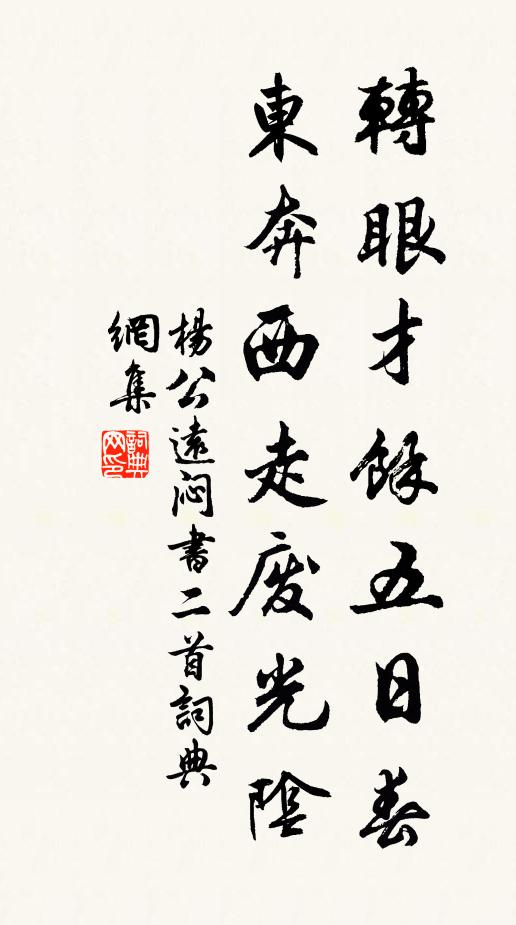 轉眼才餘五日春
東奔西走廢光陰
楊公遠悶書二首詞典
網集
詞典網印